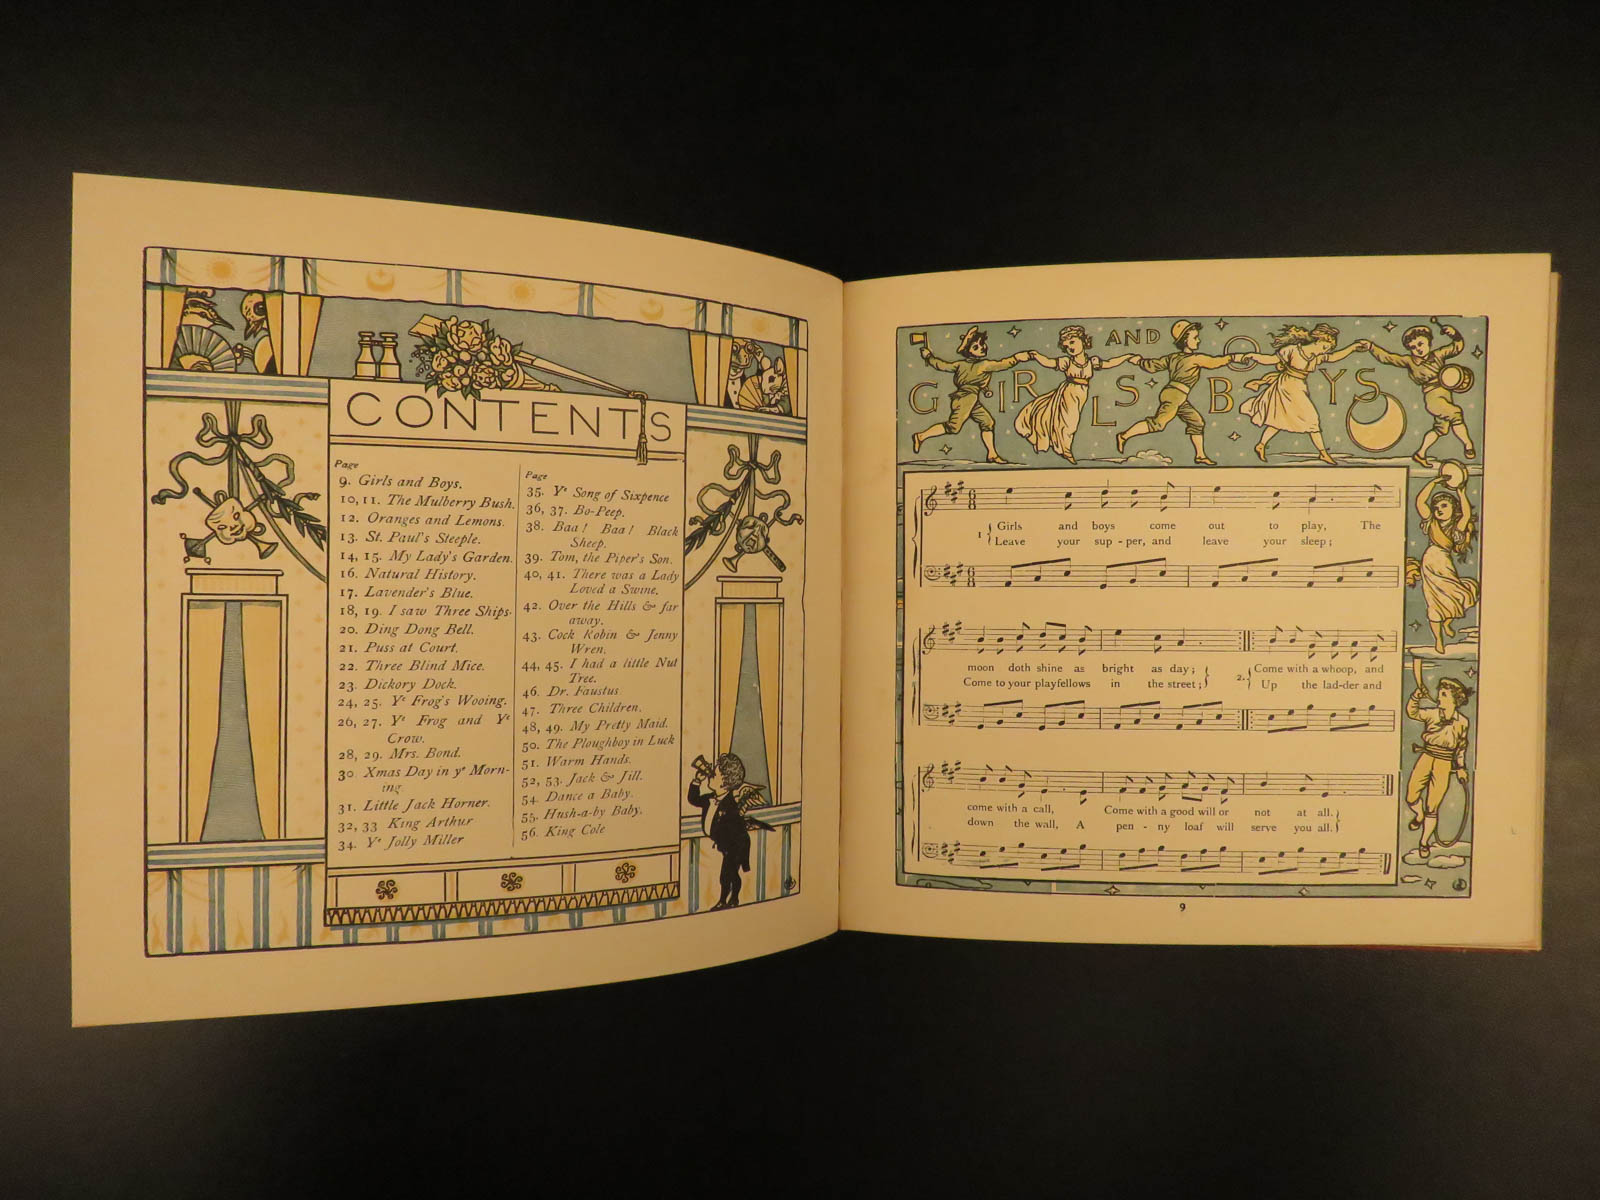 CONTENTS
Page
9. Girls and Boys.
10, 11. The Mulberry Bush.
12. Oranges and Lemons.
13. St. Paul's Steeple.
14, 15. My Lady's Garden.
16. Natural History.
17. Lavender's Blue.
18, 19. I saw Three Ships.
20. Ding Dong Bell.
21. Puss at Court.
22. Three Blind Mice.
23. Dickory Dock.
24, 25. Ye Frog's Wooing.
26, 27. Ye Frog and Ye
Crow.
28, 29. Mrs. Bond.
30 Xmas Day in ye Morn-
ing.
31. Little Jack Horner.
32, 33 King Arthur
34. Ye Jolly Miller
Page
35. Ye Song of Sixpence
36, 37. Bo-Peep.
38. Baa! Baa! Black
Sheep.
39. Tom, the Piper's Son.
40, 41. There was a Lady
Loved a Swine.
42. Over the Hills & far
away.
43. Cock Robin & Jenny
Wren.
44, 45. I had a little Nut
Tree.
46. Dr. Faustus
47. Three Children.
48, 49. My Pretty Maid.
50. The Ploughboy in Luck
51. Warm Hands.
52, 53. Jack & Jill.
54. Dance a Baby.
55. Hush-a-by Baby.
56. King Cole
GIRLS AND BOYS
1 { Girls and boys come out to play, The
Leave your sup - per, and leave your sleep;
moon doth shine as bright as day; } 2. { Come with a whoop, and
Come to your playfellows in the street; Up the lad-der and
come with a call, Come with a good will or not at all. }
down the wall, A pen - ny loaf will serve you all.
9